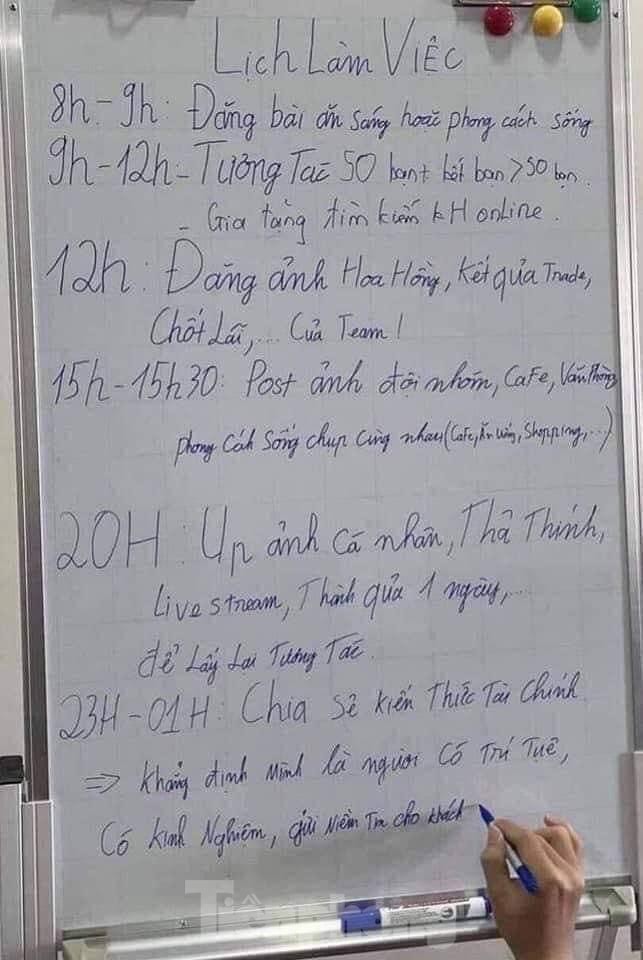 Lịch Làm Việc
8h-9h: Đăng bài ăn sáng hoặc phong cách sống
9h-12h- Tương Tác 50 bạn+ kết bạn >50 bạn.
Gia tăng tìm kiếm KH online.
12h: Đăng ảnh Hoa Hồng, Kết quả Trade,
Chốt Lãi,... Của Team!
15h-15h30: Post ảnh đội nhóm, CaFe, Văn Phòng
phong Cách Sống chụp Cùng nhau (Cafe, Ăn uống, Shopping,...)
20H: Up ảnh Cá nhân, Thả Thính,
Live stream, Thành quả 1 ngày,...
để Lấy Lại Tương Tác.
23H-01H: Chia Sẻ Kiến Thức Tài Chính.
=> Khẳng định Mình là người Có Trí Tuệ,
Có Kinh Nghiệm, gửi Niềm Tin cho khách
Tiền Phong